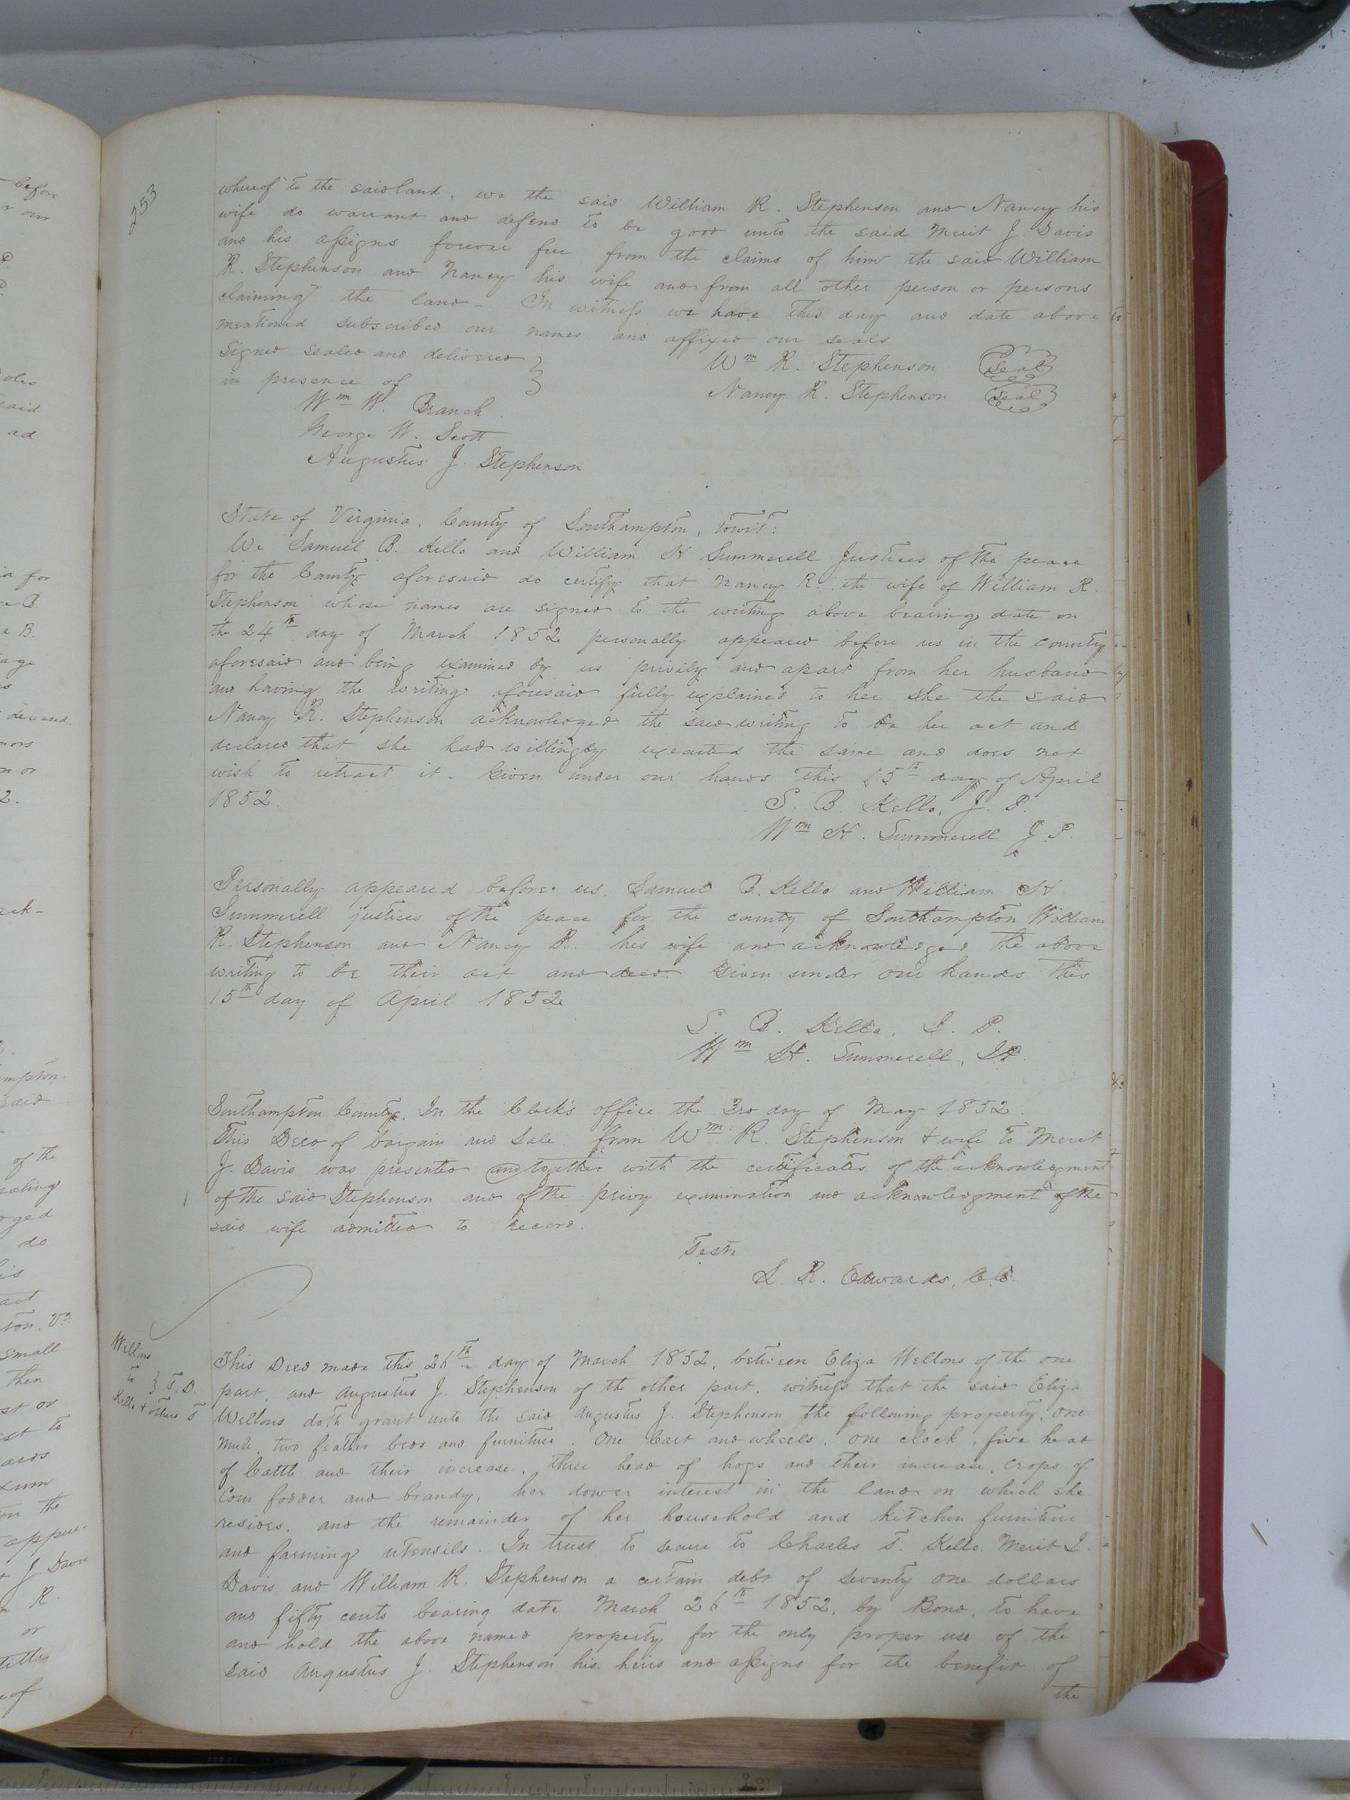 253
whereof to the said land, we the said William R. Stephenson and Nancy his
wife do warrant and defend to be good unto the said Merit J. Davis
and his assigns forever free from the claims of him the said William
R. Stephenson and Nancy his wife and from all other person or persons
claiming the land - In witness we have this day and date above
mentioned subscribed our names and affixed our seals
Signed sealed and delivered
in presence of
Wm R. Stephenson Seal
Nancy R. Stephenson Seal
Wm W. Branch
George W. Scott
Augustus J. Stephenson
State of Virginia, County of Southampton, towit:
We Samuel B. Kello and William H Summerell Justices of the peace
for the County aforesaid do certify that Nancy R. the wife of William R.
Stephenson whose names are signed to the writing above bearing date on
the 24th day of March 1852 personally appeared before us in the county
aforesaid and being examined by us privily and apart from her husband
and having the writing aforesaid fully explained to her she the said
Nancy R. Stephenson acknowledged the said writing to be her act and
declared that she had willingly executed the same and does not
wish to retract it. Given under our hands this 15th day of April
1852
S. B. Kello, J. P.
Wm H. Summerell J. P.
Personally appeared before us Samuel B. Kello and William H
Summerell justices of the peace for the county of Southampton William
R. Stephenson and Nancy R. his wife and acknowledged the above
writing to be their act and deed. Given under our hands this
15th day of April 1852
S. B. Kello, J. P.
Wm H. Summerell, J.P.
Southampton County. In the Clerk's office the 3rd day of May 1852.
This Deed of bargain and Sale from Wm R. Stephenson & wife to Merit
J. Davis was presented and together with the certificates of the acknowledgment
of the said Stephenson and of the privy examination and acknowledgment of the
said wife admitted to record.
Teste
L. R. Edwards, C.C.
Wellons
to } T. D.
Kello & others
This Deed made this 26th day of March 1852, between Eliza Wellons of the one
part, and Augustus J. Stephenson of the other part, witness that the said Eliza
Wellons doth grant unto the said Augustus J. Stephenson the following property. One
mule, two feather beds and furniture. One Cart and wheels, one clock, five head
of Cattle and their increase, three head of hogs and their increase, crops of
Corn fodder and brandy, her dower interest in the land on which she
resides, and the remainder of her household and kitchen furniture
and farming utensils. In trust to secure to Charles S. Kello, Merit J.
Davis and William R. Stephenson a certain debt of Seventy one dollars
and fifty cents bearing date March 26th 1852, by Bond, to have
and hold the above named property for the only proper use of the
said Augustus J. Stephenson his heirs and assigns for the benefit of
the